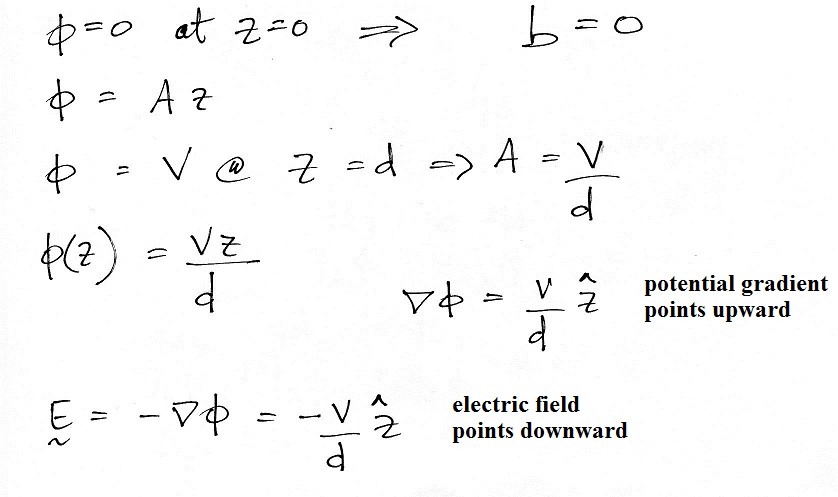 ϕ=0 at z=0 ⇒ b=0
ϕ = A z
ϕ = V @ z = d ⇒ A = V/d
ϕ(z) = Vz/d
∇ϕ = V/d ẑ potential gradient
points upward
E = -∇ϕ = -V/d ẑ electric field
points downward